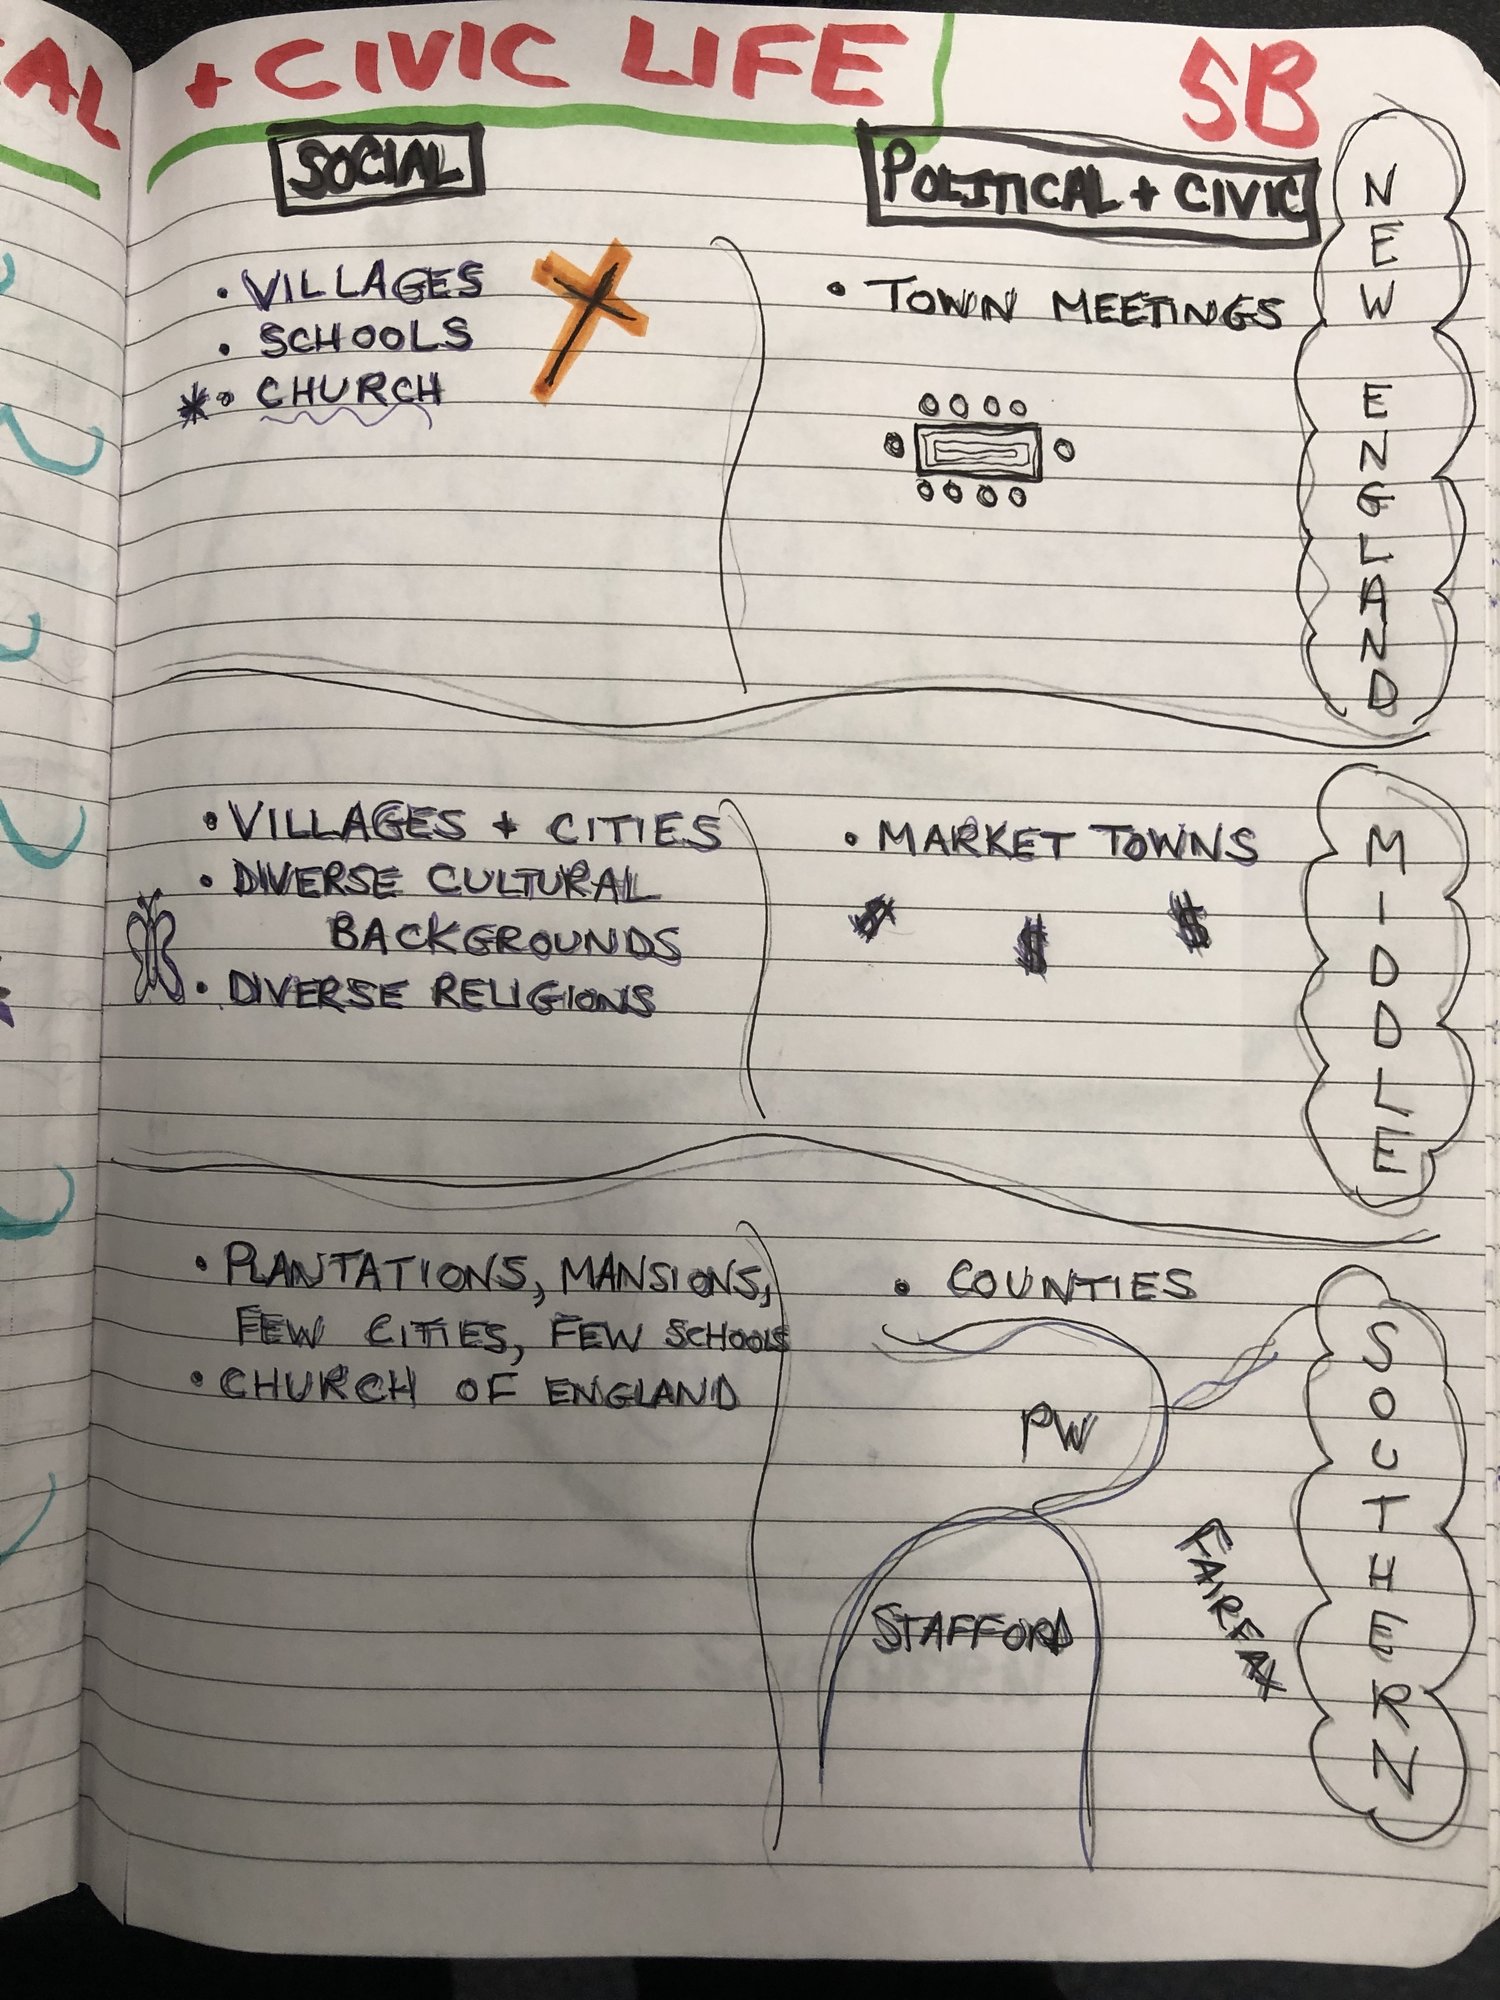 AL + CIVIC LIFE
5B
SOCIAL
POLITICAL + CIVIC
NEW ENGLAND
• VILLAGES
• SCHOOLS
* • CHURCH
• TOWN MEETINGS
MIDDLE
• VILLAGES + CITIES
• DIVERSE CULTURAL
BACKGROUNDS
• DIVERSE RELIGIONS
• MARKET TOWNS
$ $ $
SOUTHERN
• PLANTATIONS, MANSIONS,
FEW CITIES, FEW SCHOOLS
• CHURCH OF ENGLAND
• COUNTIES
PW
STAFFORD
FAIRFAX